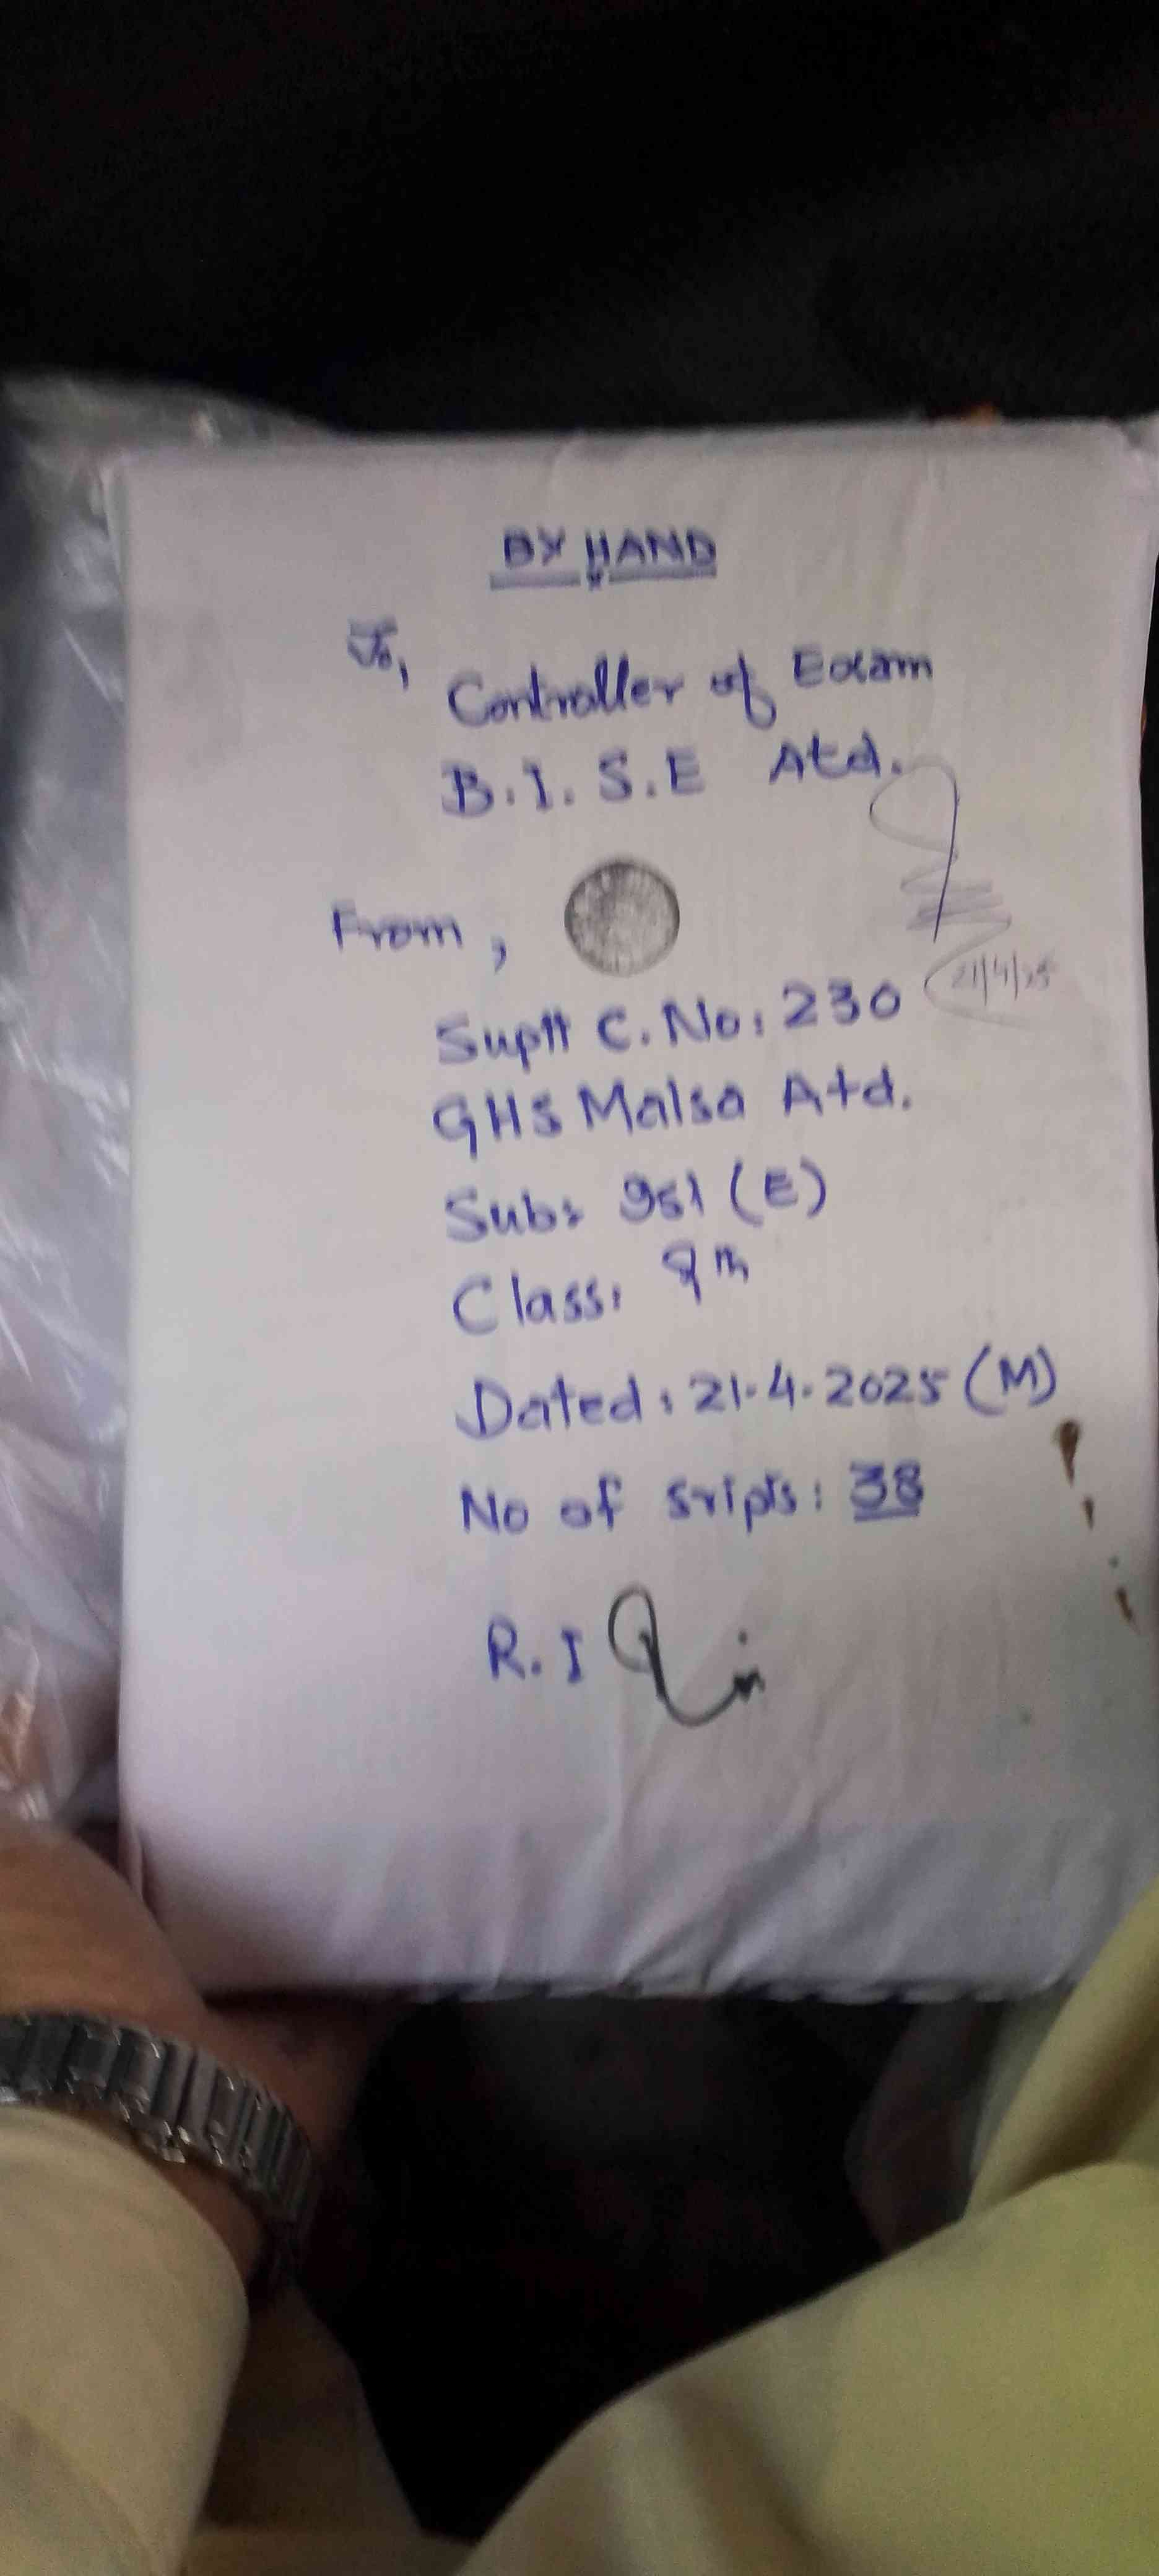 BY HAND
To,
Controller of Exam
B.I.S.E Atd.
From,
21/4/25
Suptt C.No: 230
GHS Malsa Atd.
Sub: 951 (E)
Class: 9th
Dated: 21-4-2025 (M)
No of sripts: 38
R.I